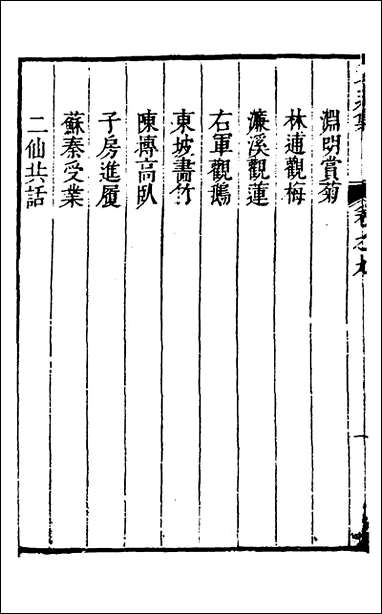 卷之九
淵明賞菊
林逋觀梅
濂溪觀蓮
右軍觀鵝
東坡畵竹
陳摶高臥
子房進履
蘇秦受業
二仙共話